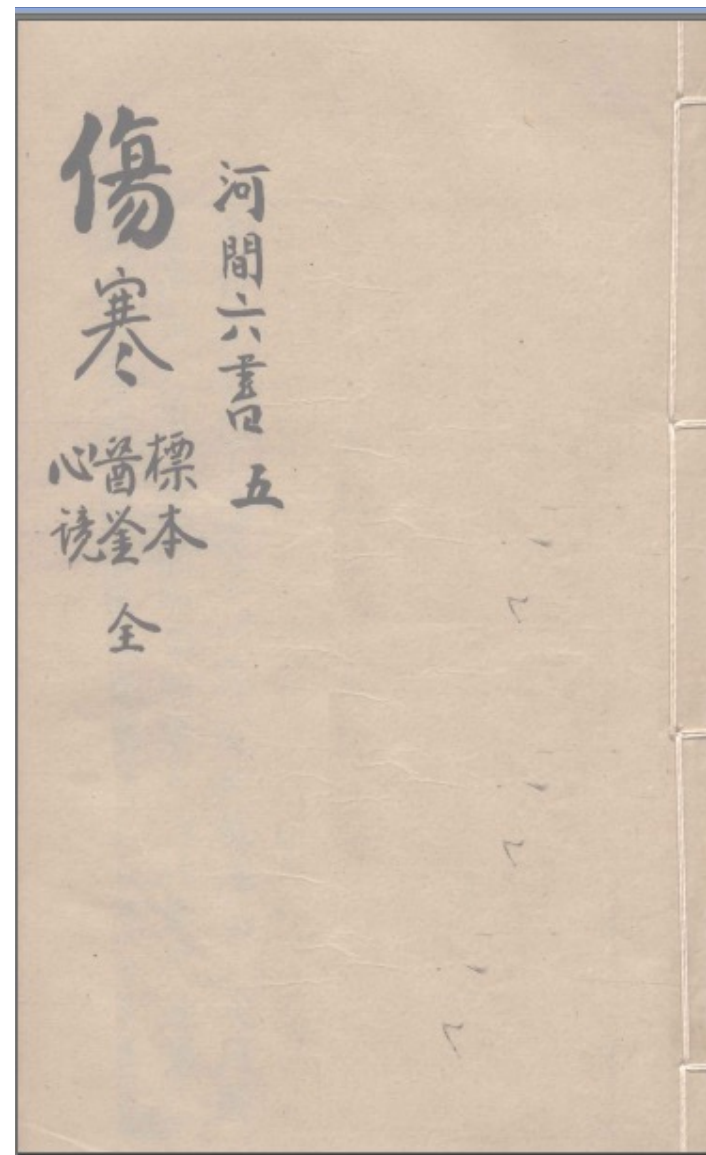 河間六書 五
傷寒
標本
醫鍳
心镜
全